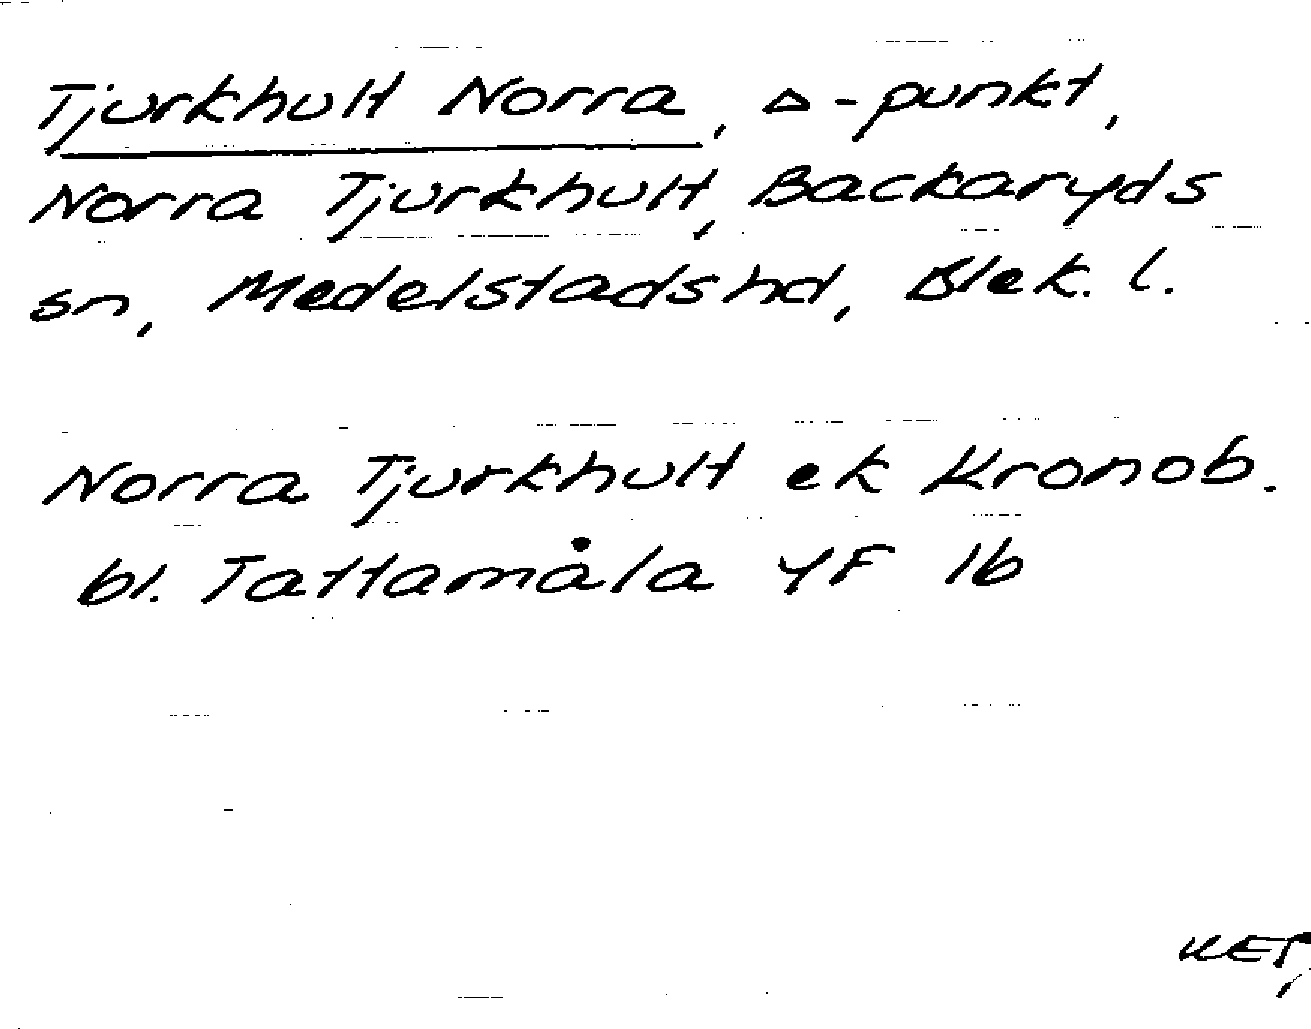 Tjurkhult Norra, △-punkt,
Norra Tjurkhult, Backaryds
sn, Medelstads hd, Blek. l.
Norra Tjurkhult ek Kronob.
bl. Tattamåla YF 1b